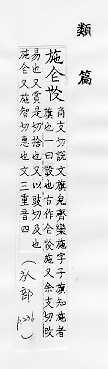 類篇
施仒㢮 商支切說文旗皃齊欒施字子旗知施者
旗也一曰設也古作仒㢮施又余支切改
易也又賞是切捨也又以豉切及也
施仒又施智切惠也文三重音四
(㫃部 p236)